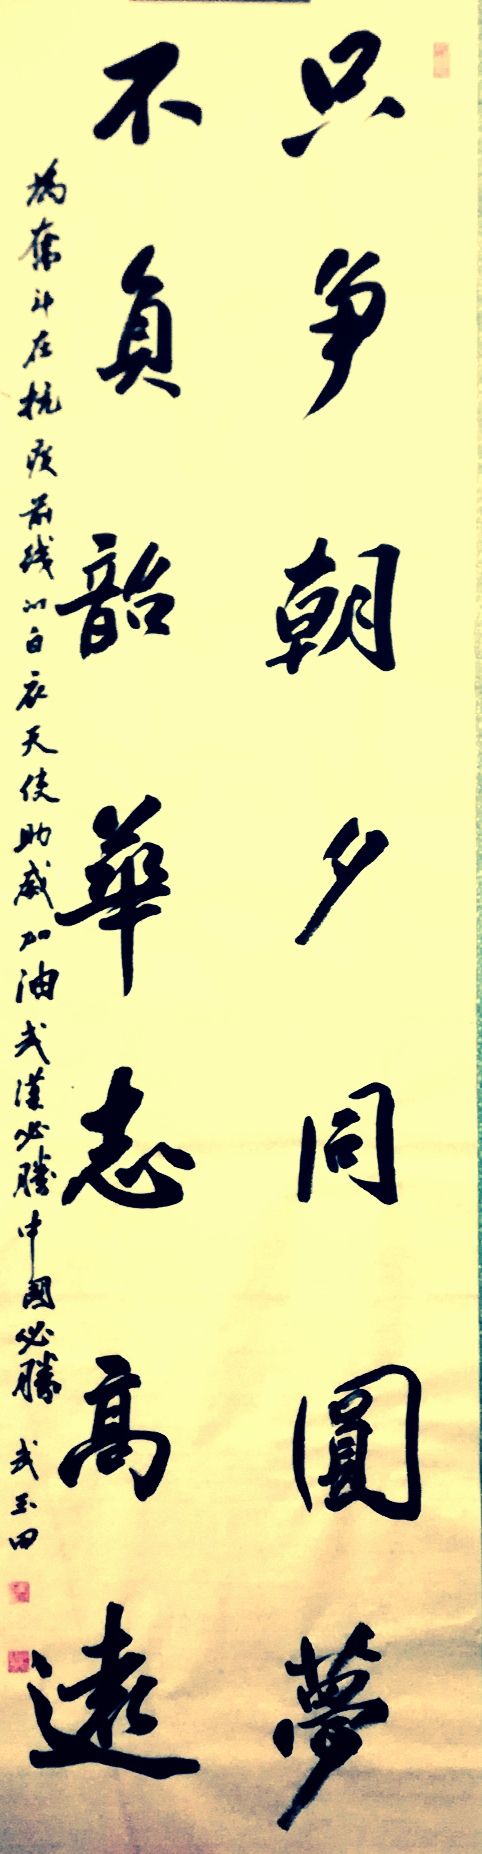 只争朝夕同圓夢
不負韶華志高遠
為奮斗在抗疫前线的白衣天使助威加油武漢必勝中國必勝 武玉田